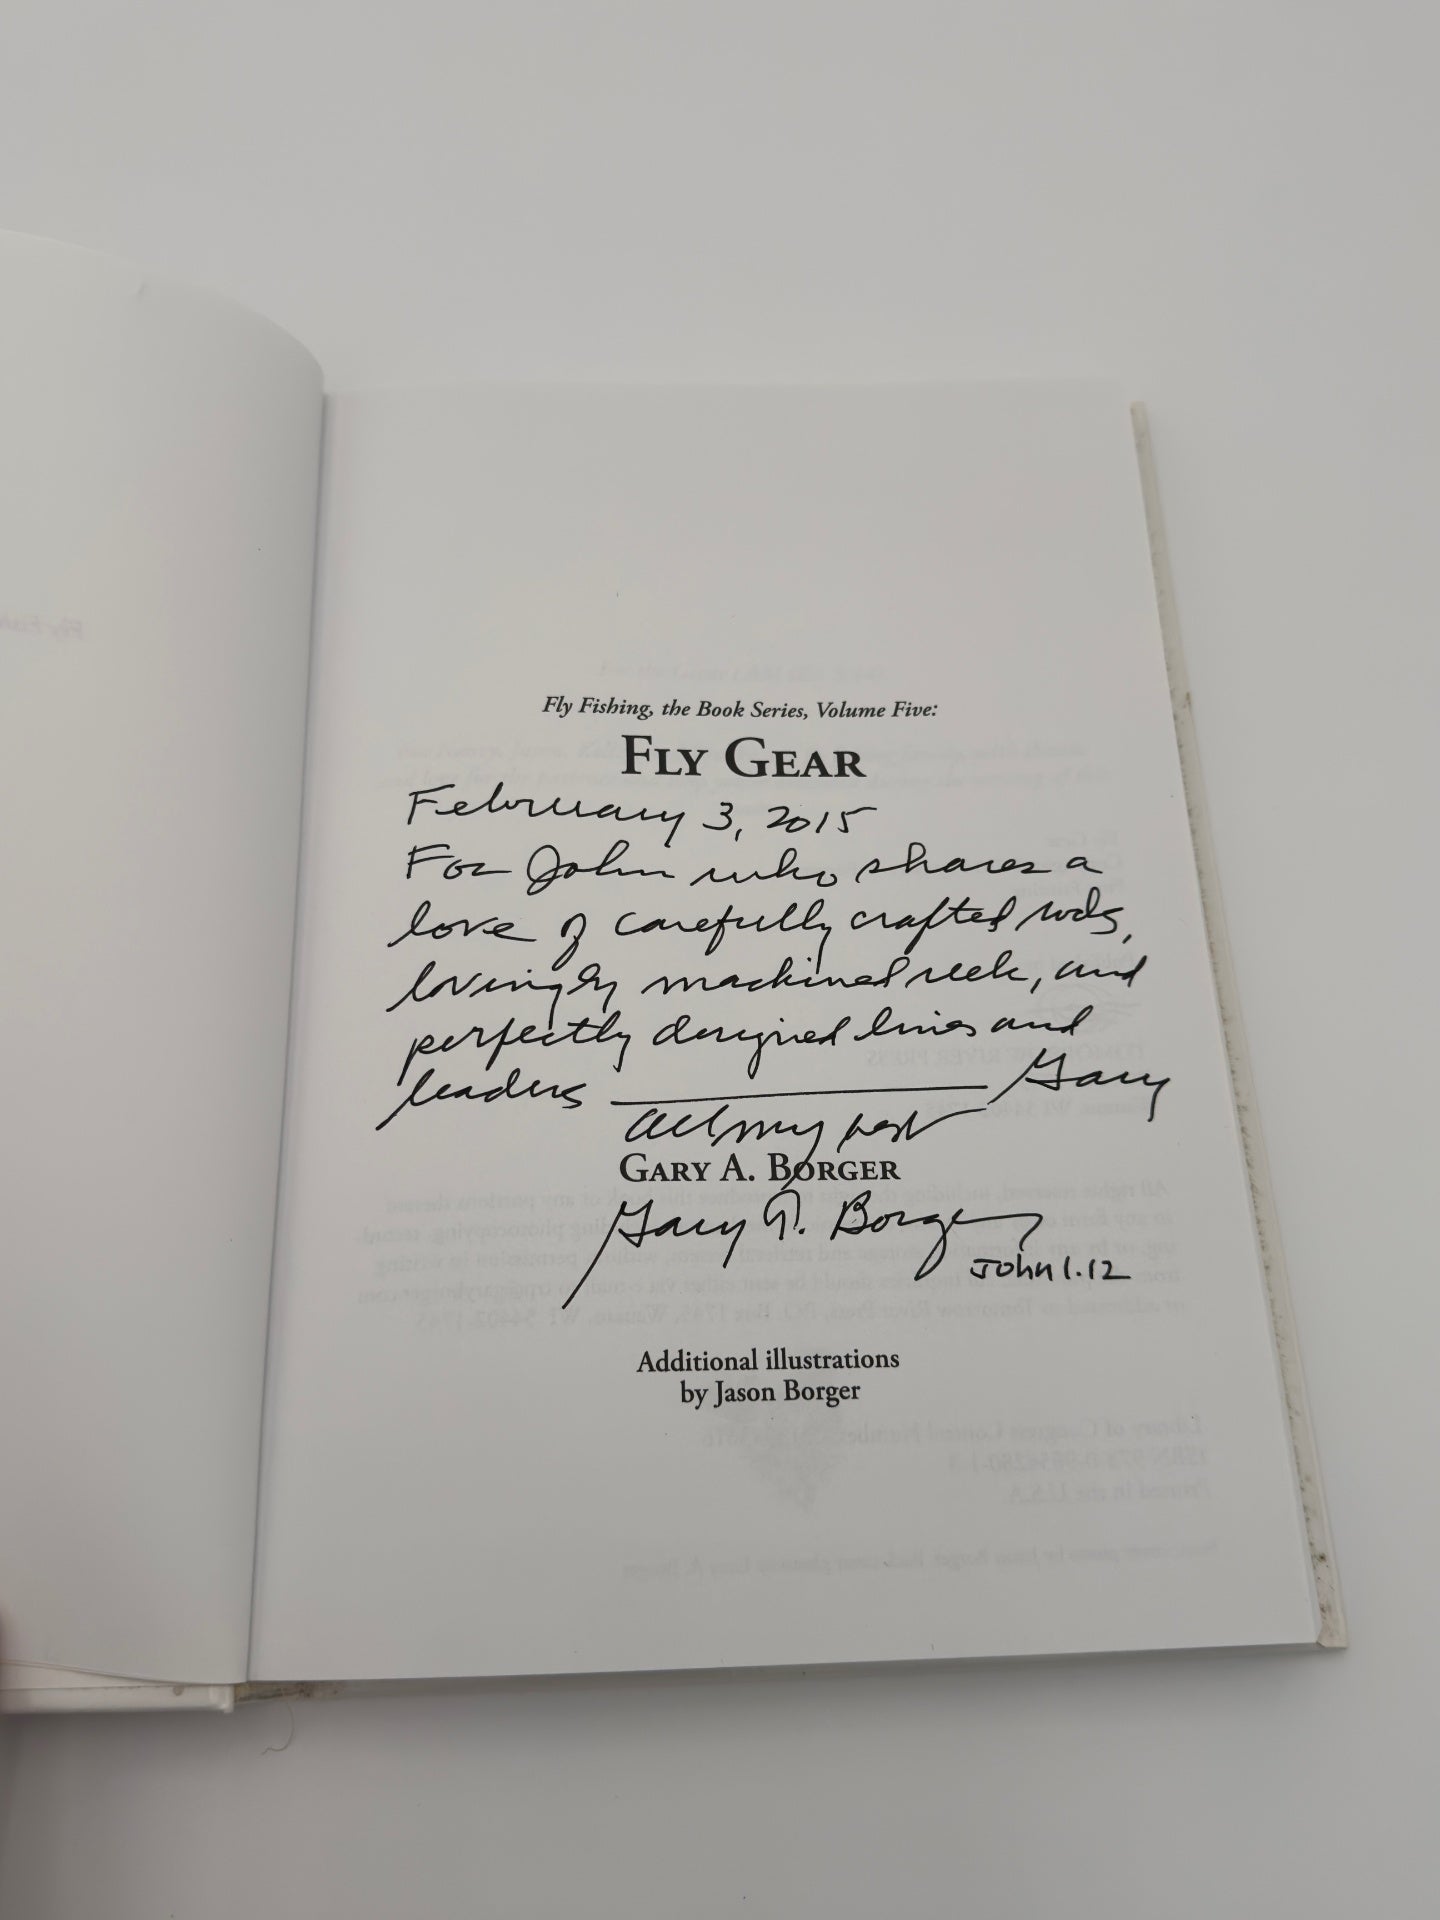 Fly Fishing, the Book Series, Volume Five:
FLY GEAR
February 3, 2015
For John who shares a
love of carefully crafted rods,
lovingly machined reels, and
perfectly designed lines and
leaders Gary
All my best
GARY A. BORGER
Gary A. Borger
John 1.12
Additional illustrations
by Jason Borger